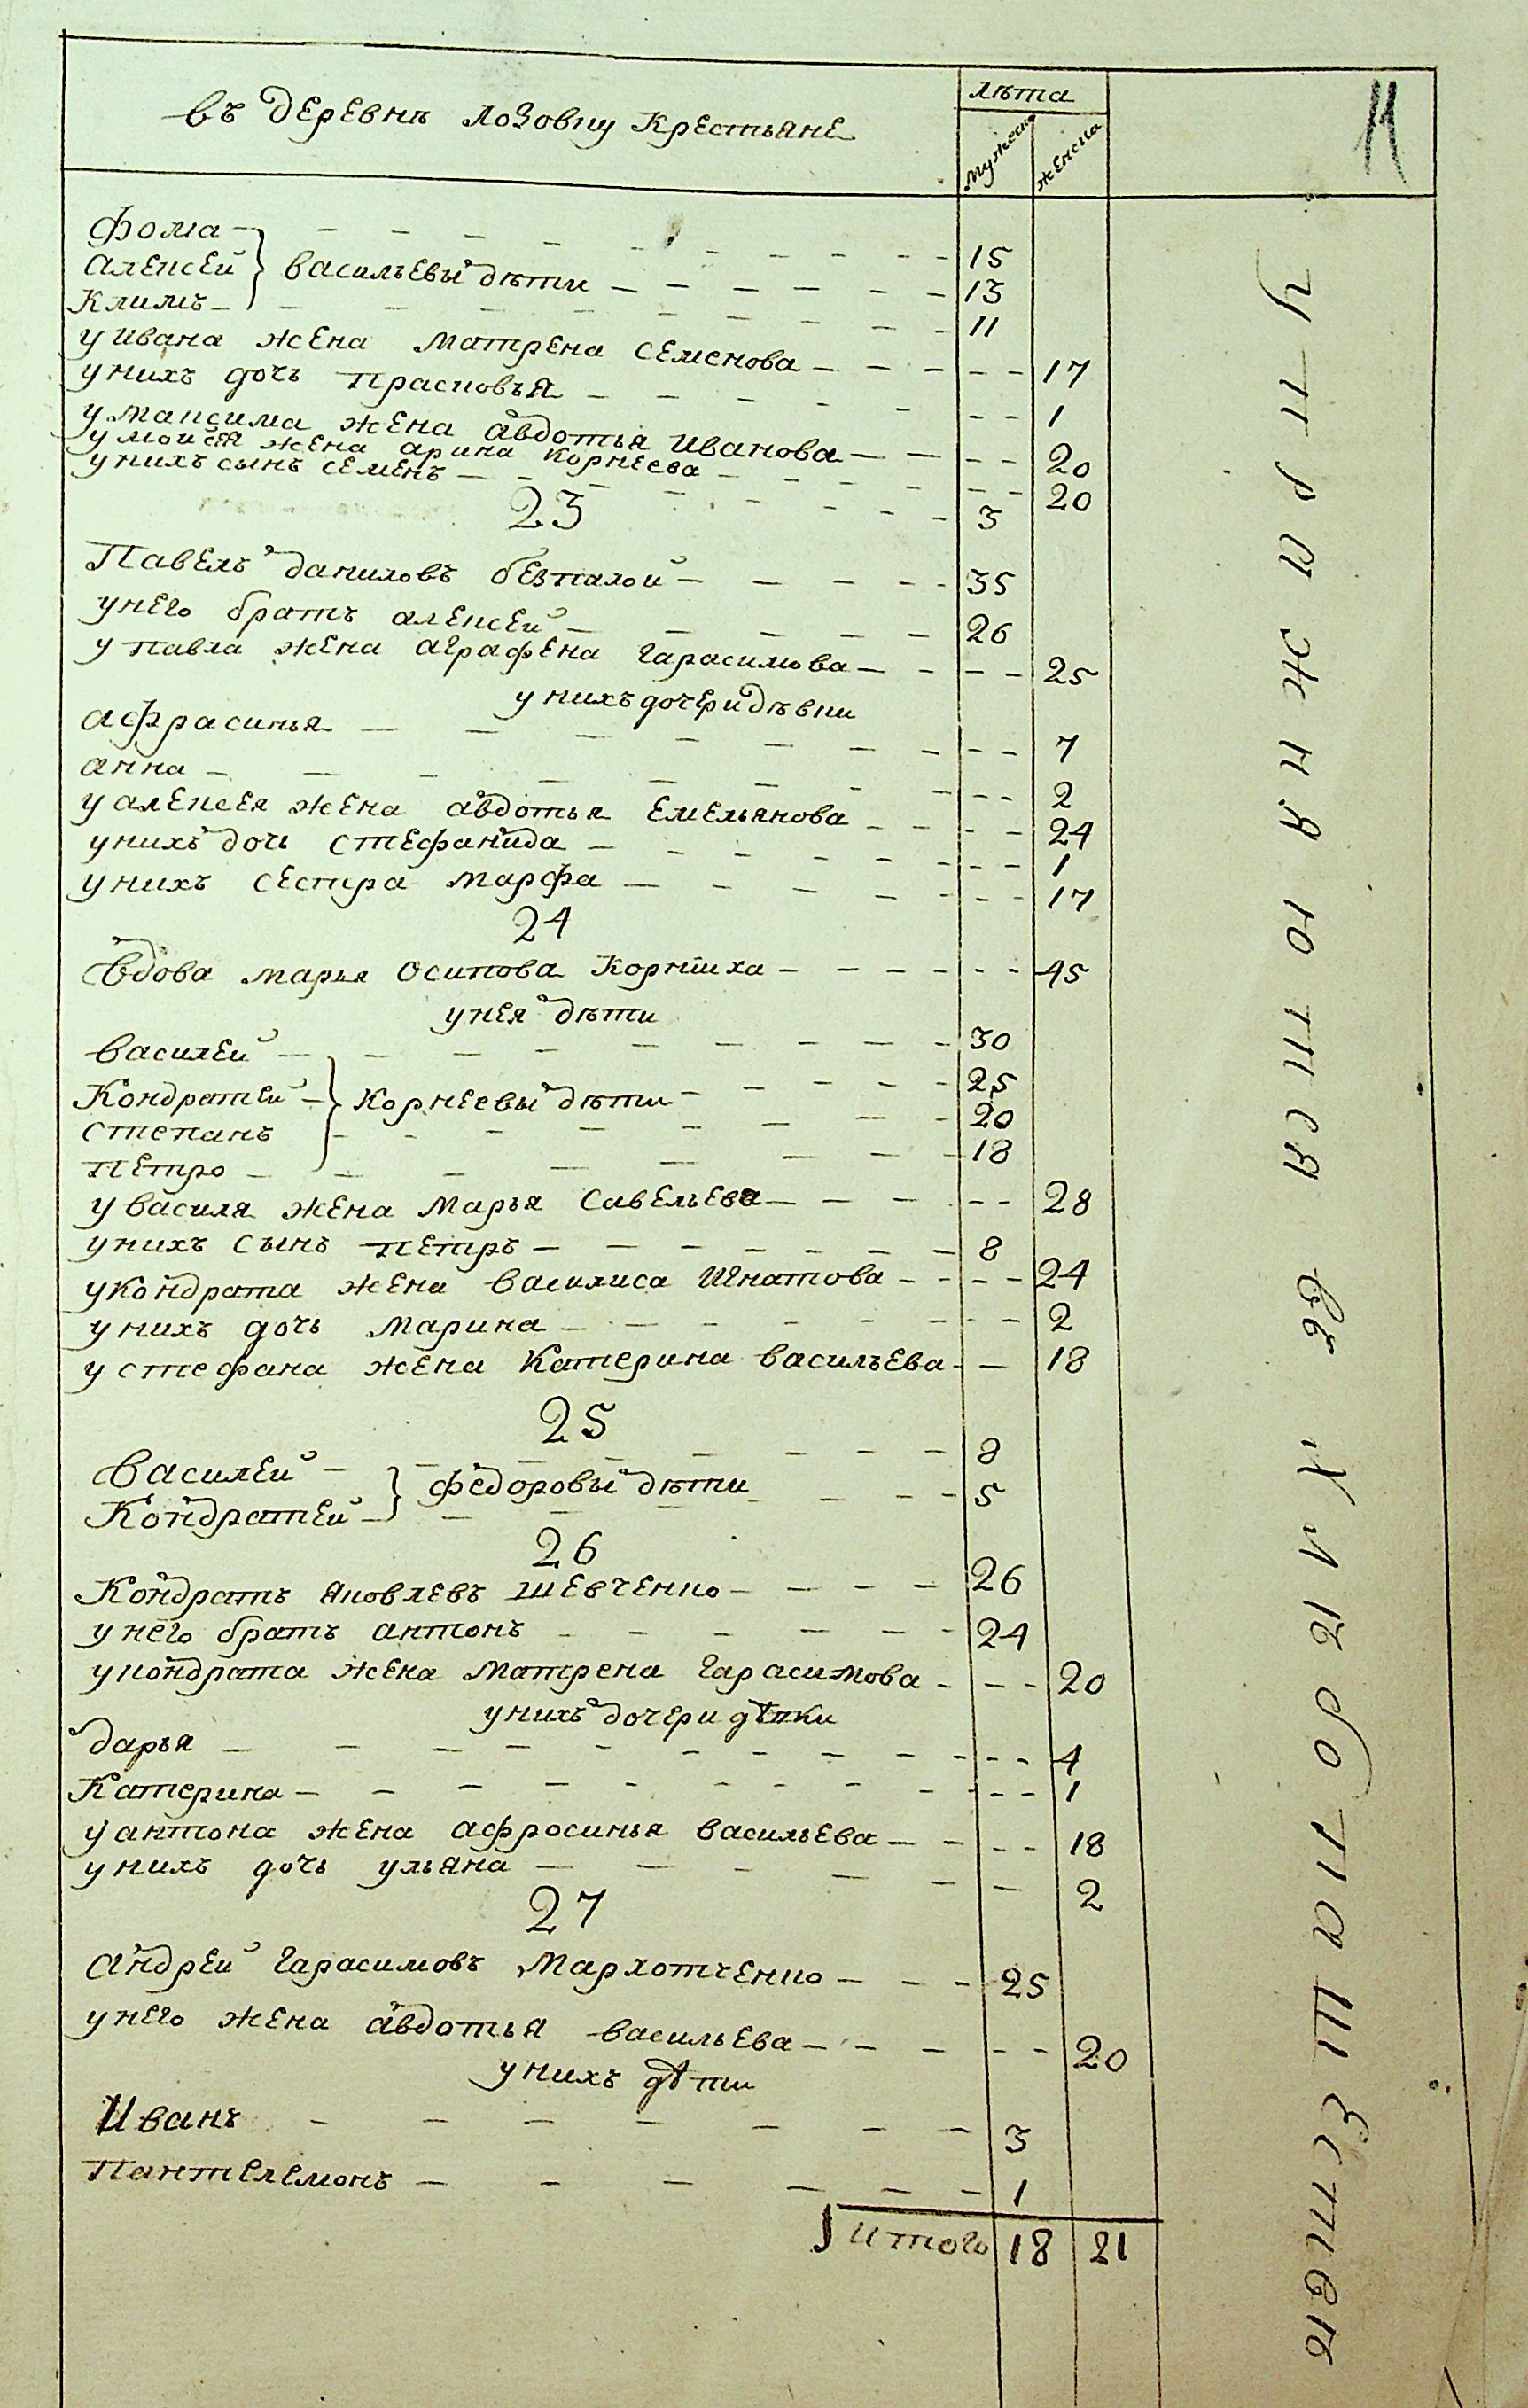 въ деревнѣ Лозовку Крестьяне
лѣта
мужеска
женска
11
Фома 15
Алексей } васильевы дѣти 13
Климъ 11
у ивана жена матрена семенова 17
унихъ дочь прасковья 1
у максима жена авдотья иванова 20
у моисея жена арина корнеева 20
унихъ сынъ семенъ 3
23
Павелъ даниловъ безпалой 35
унего братъ алексей 26
у павла жена аграфена гарасимова 25
унихъ дочери дѣвки
афрасинья 7
анна 2
у алексея жена авдотья емельянова 24
унихъ дочь стефанида 1
унихъ сестра марфа 17
24
вдова марья осипова корниха 45
унея дѣти
василей 30
Кондратей } корнеевы дѣти 25
степанъ 20
петро 18
у василя жена марья савельева 28
унихъ сынъ петръ 8
укондрата жена василиса игнатова 24
унихъ дочь марина 2
у стефана жена катерина васильева 18
25
василей 8
Кондратей } федоровы дѣти 5
26
Кондратъ яковлевъ шевченко 26
унего братъ антонъ 24
укондрата жена матрена гарасимова 20
унихъ дочери дѣвки
дарья 4
Катерина 1
у антона жена афросинья васильева 18
унихъ дочь ульяна 2
27
андрей гарасимовъ мархотченко 25
унего жена авдотья васильева 20
унихъ дѣти
Иванъ 3
пантелемонъ 1
итого 18 21